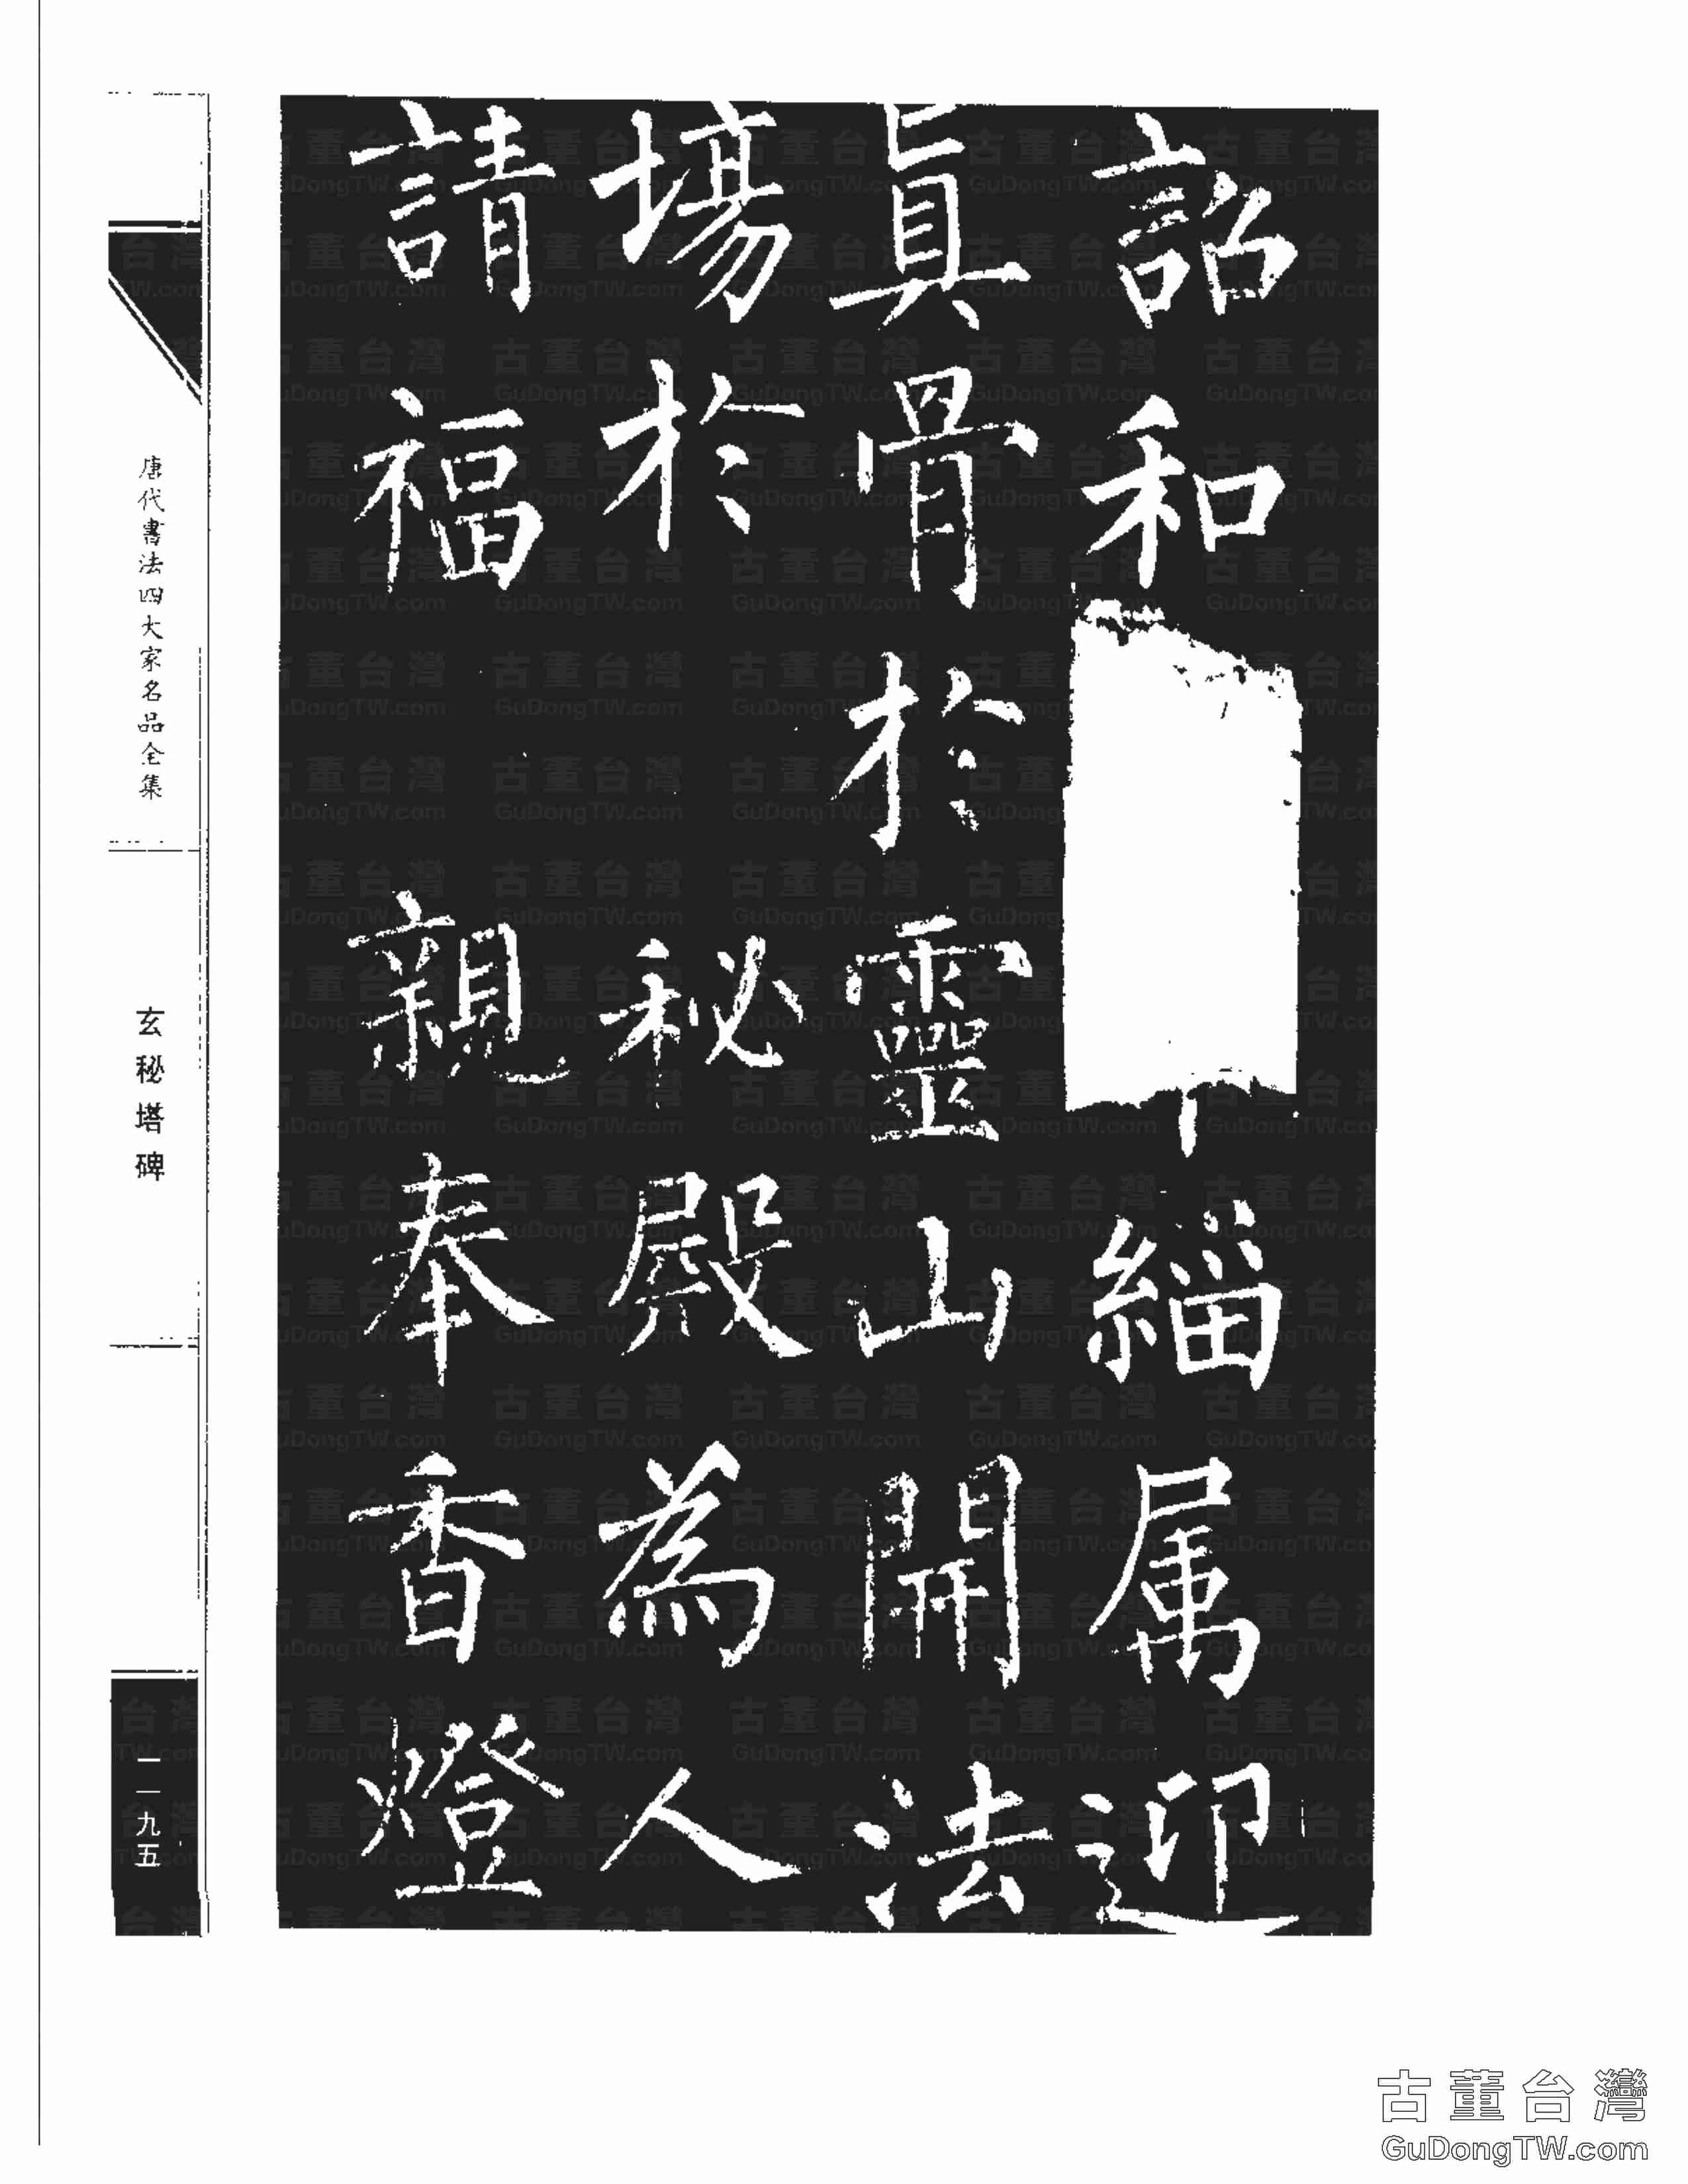 詔和緇属迎
眞骨於靈山開法
場於秘殿為人
請福親奉香燈
唐代書法四大家名品全集
玄秘塔碑
一一九五
古董台灣
GuDongTW.com